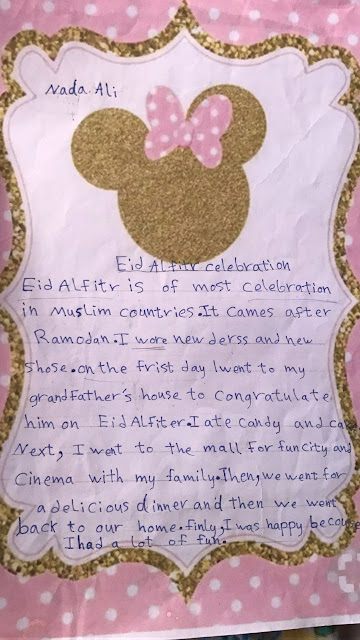 Nada Ali
Eid Alfitr celebration
Eid Alfitr is of most celebration
in Muslim countries. It Cames after
Ramodan. I wore new derss and new
shose. on the frist day I went to my
grandfather's house to Congratulate
him on Eid Alfiter. I ate candy and
Next, I went to the mall for funcity and
Cinema with my family. Then, we went for
a delicious dinner and then we went
back to our home. finly, I was happy because
I had a lot of fun.